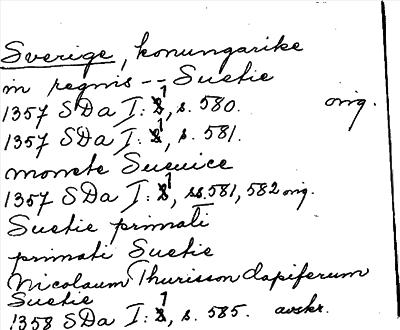 Sverige, konungarike
in regnis -- Suetie
1357 SDa I: 1, s. 580. orig.
1357 SDa I: 1, s. 581.
monete Sueuice
1357 SDa I: 1, ss. 581, 582 orig.
Suetie primati
primati Suetie
Nicolaum Thurisson dapiferum
Suetie
1358 SDa I: 1, s. 585. avskr.